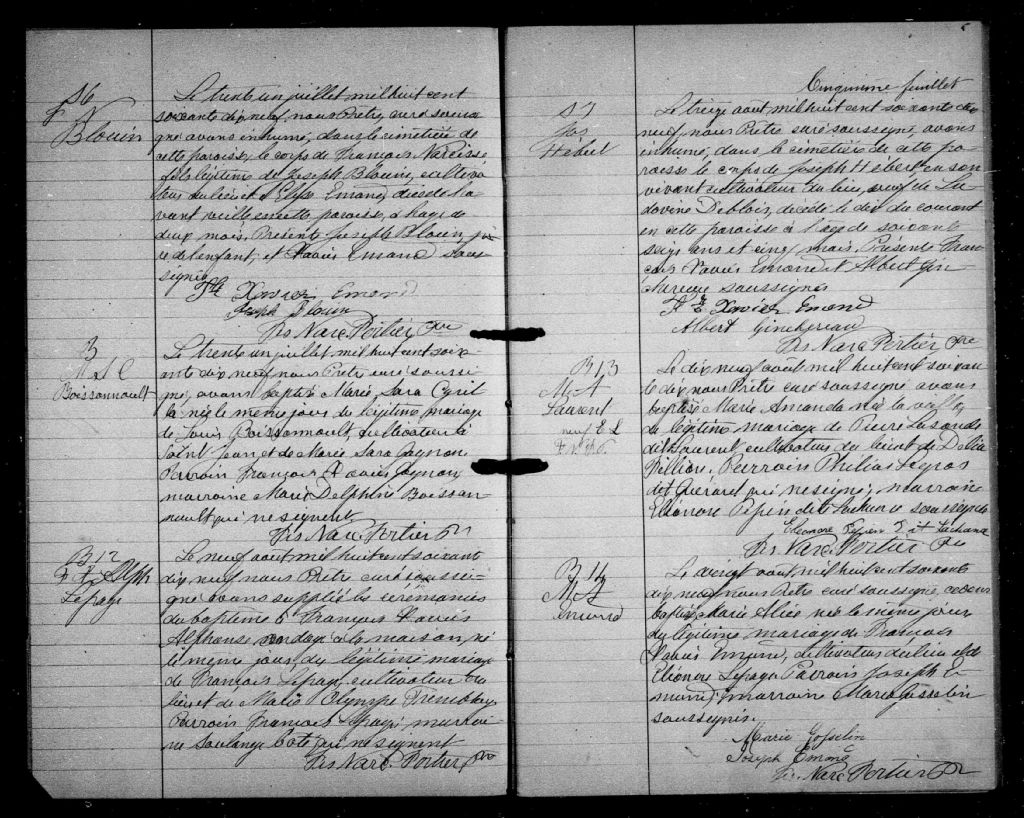 S6
F N
Blouin
Le trente un juillet mil huit cent
soixante dix neuf, nous Prêtre, curé soussi
gné avons inhumé, dans le cimetière de
cette paroisse, le corps de François Narcisse
fils légitime de Joseph Blouin, cultiva
teur du lieu et d'Elise Emond, décédé l'a
vant veille en cette paroisse, à l'age de
deux mois. Présents Joseph Blouin, pè
re de l'enfant, et Xavier Emond sous
signés
Xavier Emond
Joseph Blouin
Frs Narc. Fortier Ptre
B
M S C
Boissonnault
Le trente un juillet mil huit cent soix
ante dix neuf nous Prêtre curé soussi
gné, avons baptisé Marie, Sara Cyril
la née le meme jour du légitime mariage
de Louis Boissonnault, cultivateur à
Saint Jean et de Marie Sara Gagnon
Parrain François Xavier Gagnon,
marraine Marie Delphine Boisson
nault qui ne signent
Frs Narc. Fortier Ptre
B 12
F X Alph
Lepage
Le neuf aout mil huit cent soixant
dix neuf nous Prêtre curé soussi
gné avons supplié les cérémonies
du baptême à François Xavier
Alphonse ondoyé à la maison, né
le meme jour, du légitime mariage
de François Lepage cultivateur du
lieu et de Marie Olympe Tremblay
Parrain François Lepage, marrai
ne Soulange Coté qui ne signent
Frs Narc. Fortier, Ptre
Cinquième feuillet
S 7
Jos
Hébert
Le treize aout mil huit cent soixante dix
neuf, nous Prêtre curé soussigné, avons
inhumé, dans le cimetière de cette pa
roisse le corps de Joseph Hébert en son
vivant cultivateur du lieu, veuf de Lu
dovine Deblois, décédé le dix du courant
en cette paroisse à l'age de soixant
seize ans et cinq mois. Présents Fran
çois Xavier Emond et Albert Gin
chereau soussignés
F X Xavier Emond
Albert Ginchereau
Frs Narc Fortier Ptre
B 13
M. A
Laurent
Le dix neuf août mil huit cent soixan
te dix, nous Prêtre curé soussigné avons
baptisé Marie Amanda née la veille
du légitime mariage de Pierre Lasonde
dit Laurent cultivateur du lieu et de Delia
Pellion. Parrain Philias Legros
dit Quérard qui ne signe; marraine
Eléonore Pepin dit Lachance soussignée
Eleonore Pepin Dit Lachance
Frs Narc. Fortier Ptre
B. 14
M. A
Emond
Le vingt aout, mil huit cent soixant
dix neuf nous Prêtre curé soussigné, avons
baptisé Marie Alice née le même jour
du légitime mariage de François
Xavier Emond, cultivateur du lieu et de
Eléonore Lepage Parrain Joseph E
mond; marraine Marie Gosselin
soussignés.
Marie Gosselin
Joseph Emond
Frs. Narc Fortier Ptre